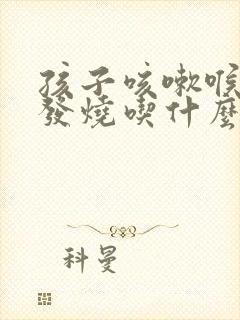 孩子咳嗽喉
發燒喫什麼
科曼